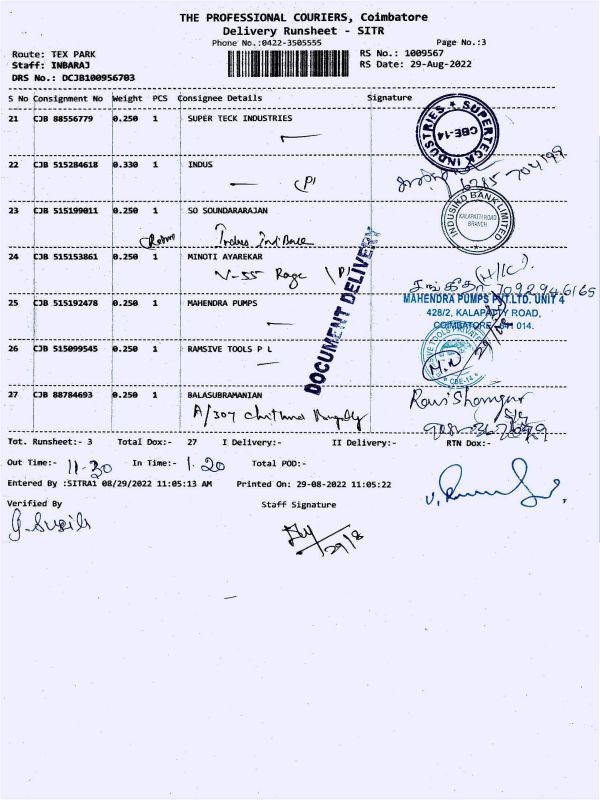 THE PROFESSIONAL COURIERS, Coimbatore
Delivery Runsheet - SITR
Phone No.:0422-3505555
Page No.:3
Route: TEX PARK
RS No.: 1009567
Staff: INBARAJ
RS Date: 29-Aug-2022
DRS No.: DCJB100956703
S No Consignment No Weight PCS Consignee Details Signature
21 CJB 88556779 0.250 1 SUPER TECK INDUSTRIES
SUPERTECK INDUSTRIES
CBE-14
22 CJB 515284618 0.330 1 INDUS
INDUSIND BANK LIMITED
KALAPATTI ROAD
BRANCH
23 CJB 515199011 0.250 1 SO SOUNDARARAJAN
24 CJB 515153861 0.250 1 MINOTI AYAREKAR
V-55
DOCUMENT DELIVERY
சங்கீதா (H/C)
7092946165
25 CJB 515192478 0.250 1 MAHENDRA PUMPS
MAHENDRA PUMPS PVT.LTD. UNIT 4
428/2, KALAPATTY ROAD,
COIMBATORE - 641 014.
26 CJB 515099545 0.250 1 RAMSIVE TOOLS P L
CBE-14
29/8
27 CJB 88784693 0.250 1 BALASUBRAMANIAN
A/307
Tot. Runsheet:- 3 Total Dox:- 27 I Delivery:- II Delivery:- RTN Dox:-
Out Time:- 11.30 In Time:- 1.20 Total POD:-
Entered By :SITRA1 08/29/2022 11:05:13 AM Printed On: 29-08-2022 11:05:22
Verified By Staff Signature
29/8